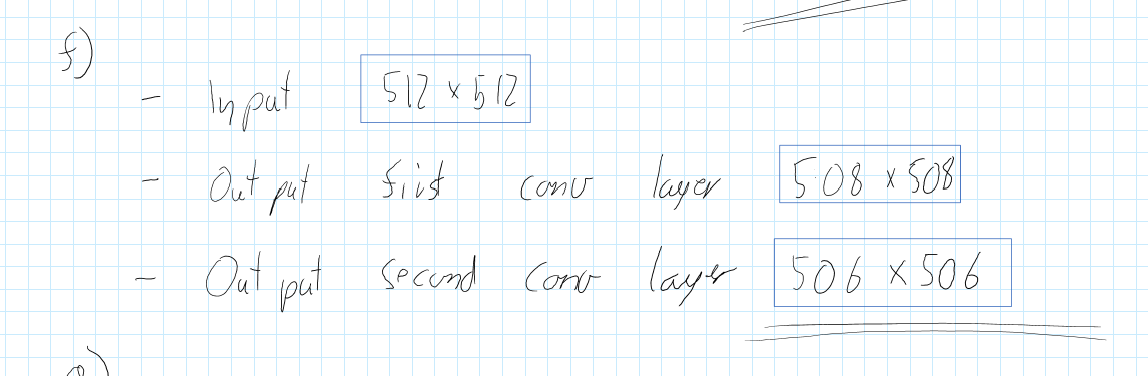 f)
- Input 512 x 512
- Output first conv layer 508 x 508
- Output second conv layer 506 x 506